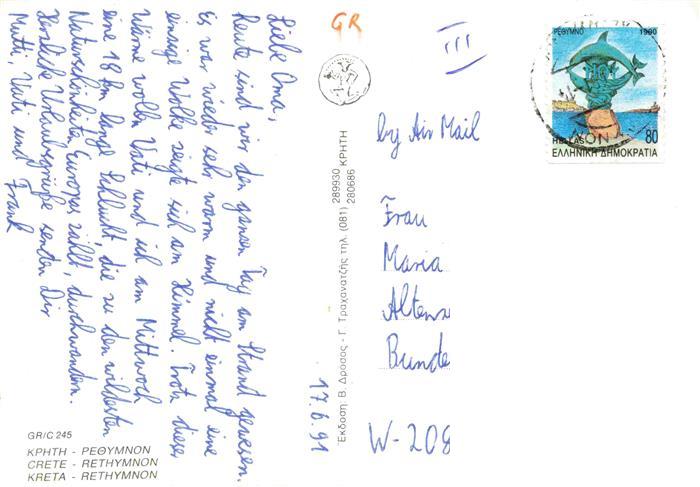 Liebe Oma,
heute sind wir den ganzen Tag am Strand gewesen.
Es war wieder sehr warm und nicht einmal eine
einzige Wolke zeigte sich am Himmel. Trotz dieser
Wärme wollen Vati und ich am Mittwoch
eine 18 km lange Schlucht, die zu den wildesten
Naturschönheiten Europas zählt, durchwandern.
Herzliche Urlaubsgrüße senden Dir
Mutti, Vati und
Frank
GR/C 245
ΚΡΗΤΗ - ΡΕΘΥΜΝΟΝ
CRETE - RETHYMNON
KRETA - RETHYMNON
17.6.91
Έκδοση Β. Δροσος - Γ. Τραχανατζής τηλ. (081) 289930 ΚΡΗΤΗ
280686
GR
III
by Air Mail
Frau
Maria
Bunde
W-208
ΡΕΘΥΜΝΟ 1990
HELLAS 80
ΕΛΛΗΝΙΚΗ ΔΗΜΟΚΡΑΤΙΑ